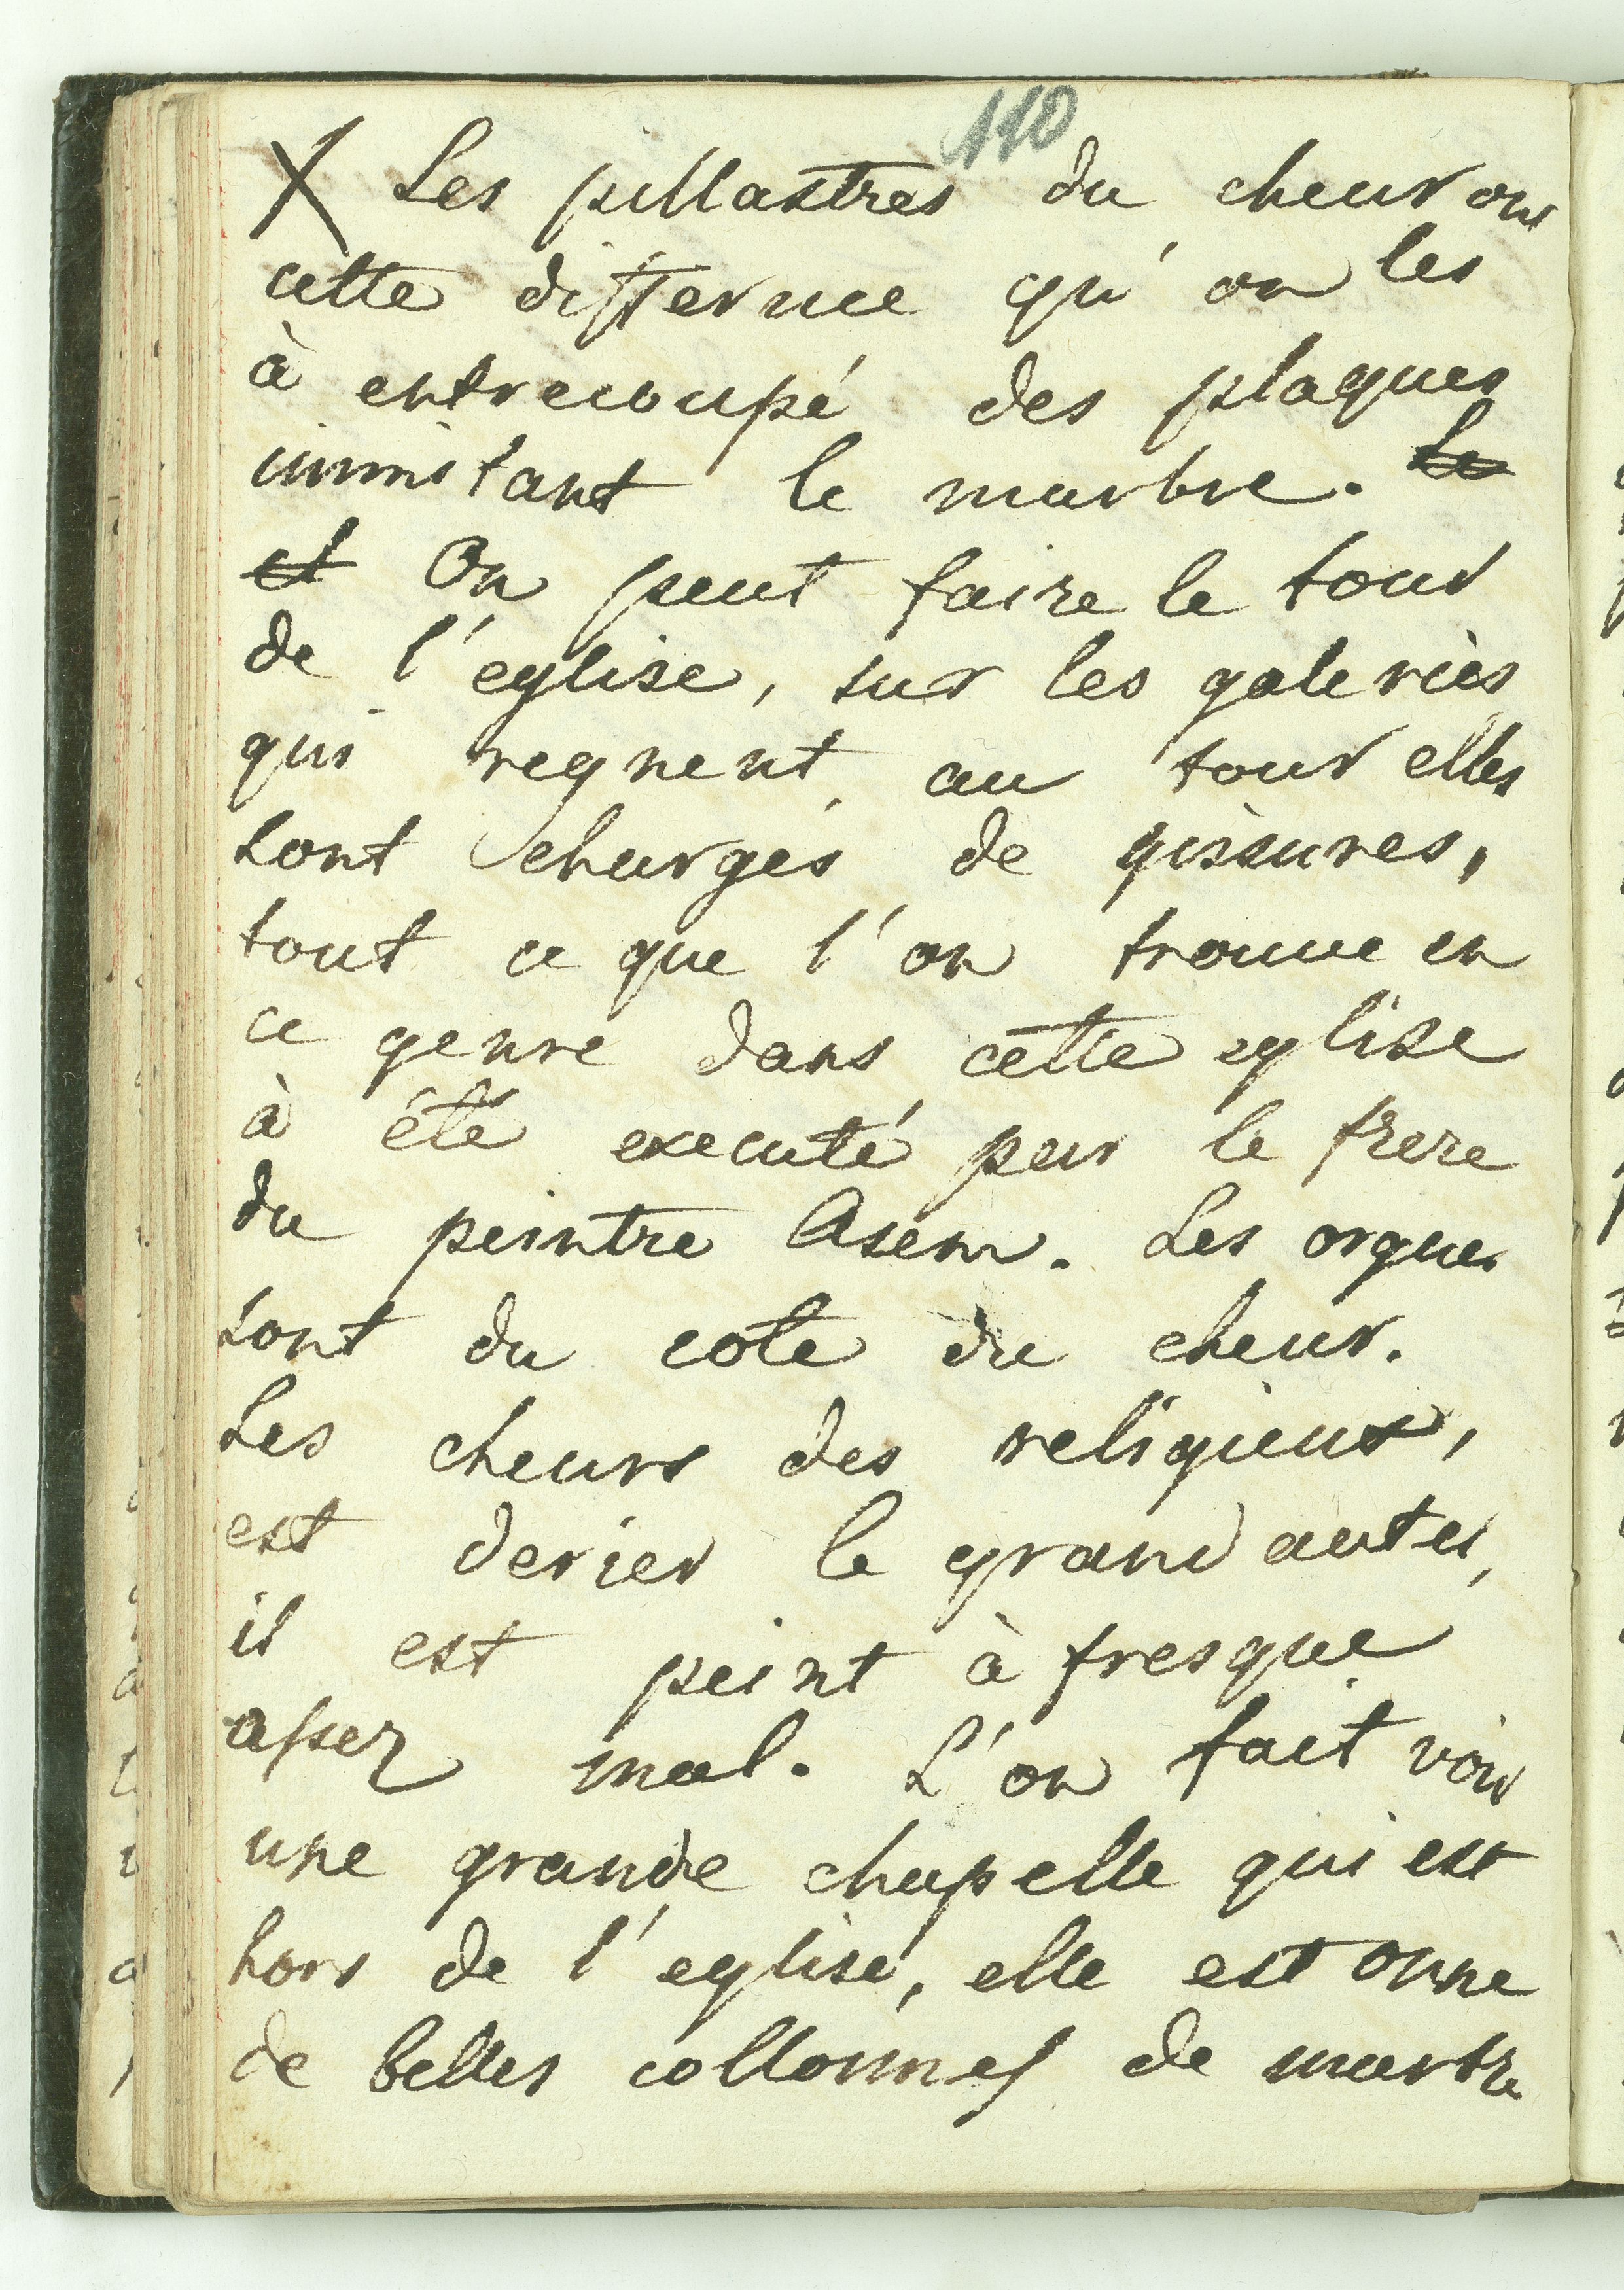 110
X Les pillastres du cheur ont
cette differnce qu'on les
à entrecoupé des plaques
immitant le marbre. Le
et On peut faire le tour
de l'eglise, sur les galeries
qui regnent au tour elles
sont chargés de gissures,
tout ce que l'on trouve en
ce genre dans cette eglise
à été executé par le frere
du peintre Asem. Les orgues
sont du cote du cheur.
Les cheurs des religieux,
est derier le grand autel,
il est peint à fresque
assez mal. L'on fait voir
une grande chapelle qui est
hors de l'eglise, elle est orne
de belles collonnes de marbre